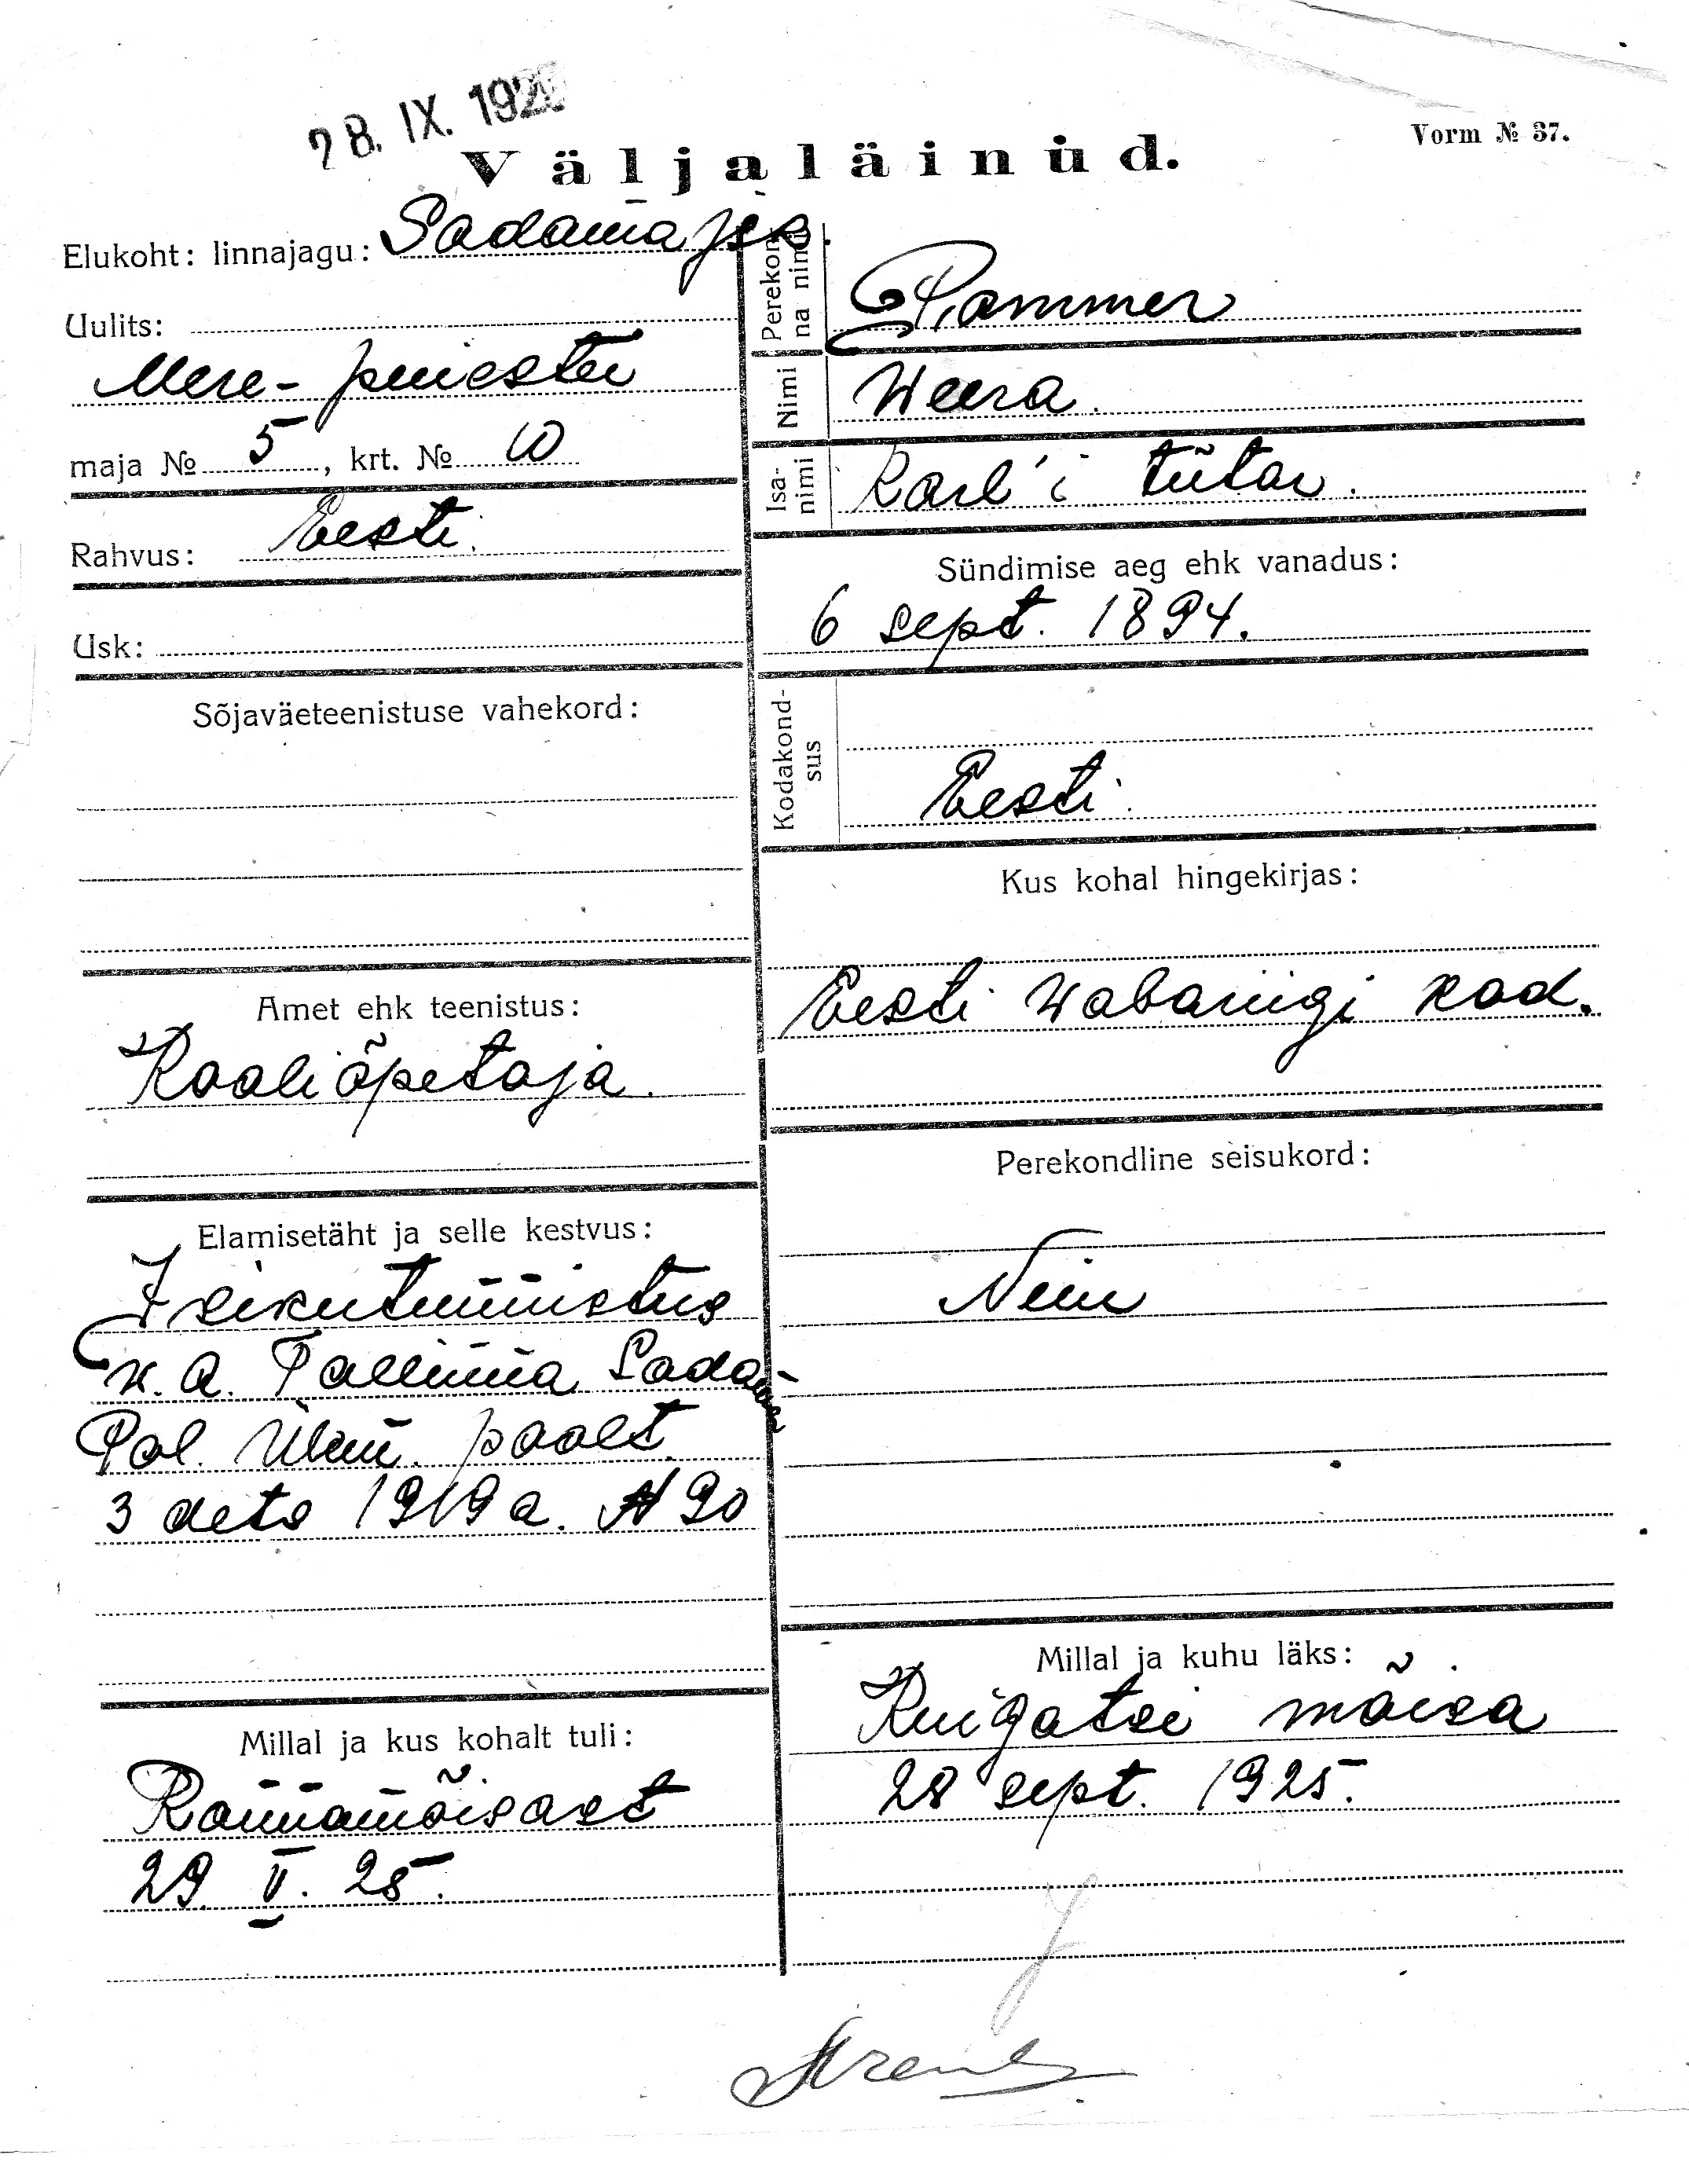 28. IX. 192
Väljaläinud.
Vorm № 37.
Elukoht: linnajagu: Sadama jsk.
Uulits:
Mere-puiestee
maja № 5, krt. № 10
Rahvus: Eesti.
Usk:
Sõjaväeteenistuse vahekord:
Amet ehk teenistus:
Kooliõpetaja.
Elamisetäht ja selle kestvus:
Isikutunnistus
w. a. Tallinna Sadama
Pol. Ülem. poolt.
3 dets 1919 a. № 90
Millal ja kus kohalt tuli:
Rannamõisast
29. V. 25.
Perekonna nimi
Pammer
Nimi
Weera.
Isanimi
Karl'i tütar.
Sündimise aeg ehk vanadus:
6 sept. 1894.
Kodakondsus
Eesti.
Kus kohal hingekirjas:
Eesti wabariigi kod.
Perekondline seisukord:
Neiu
Millal ja kuhu läks:
Kuigatsi mõisa
28 sept. 1925.